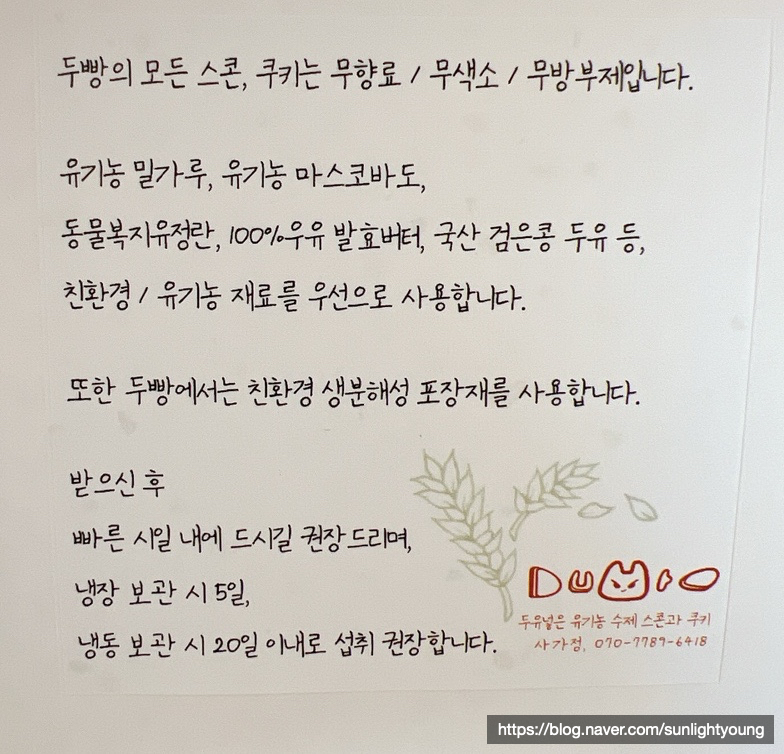 두빵의 모든 스콘, 쿠키는 무향료 / 무색소 / 무방부제입니다.
유기농 밀가루, 유기농 마스코바도,
동물복지유정란, 100%우유 발효버터, 국산 검은콩 두유 등,
친환경 / 유기농 재료를 우선으로 사용합니다.
또한 두빵에서는 친환경 생분해성 포장재를 사용합니다.
받으신 후
빠른 시일 내에 드시길 권장드리며,
냉장 보관 시 5일,
냉동 보관 시 20일 이내로 섭취 권장합니다.
두유넣은 유기농 수제 스콘과 쿠키
사가정, 070-7789-6418
https://blog.naver.com/sunlightyoung